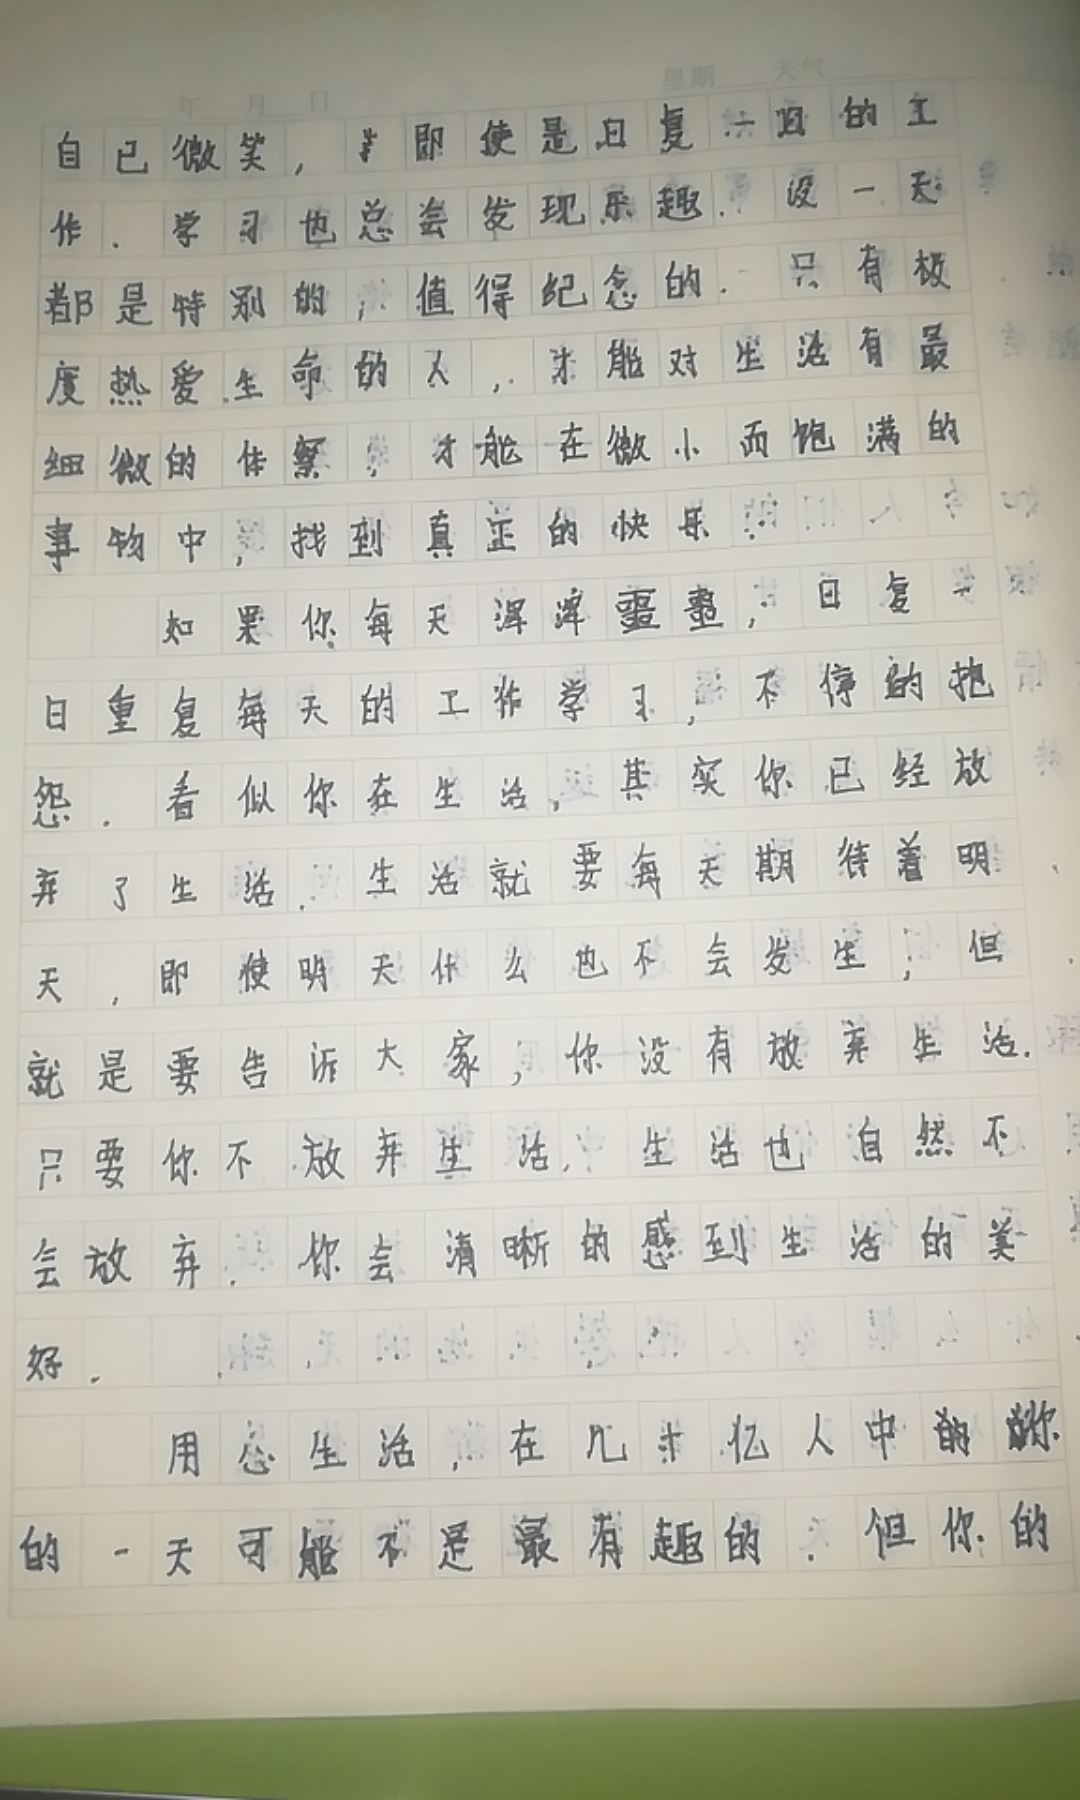 年 月 日 星期 天气
自己微笑，即使是日复一日的工
作．学习也总会发现乐趣．没一天
都是特别的，值得纪念的．只有极
度热爱生命的人，才能对生活有最
细微的体察，才能在微小而饱满的
事物中，找到真正的快乐．
如果你每天浑浑噩噩，日复一
日重复每天的工作学习，不停的抱
怨．看似你在生活，其实你已经放
弃了生活．生活就要每天期待着明
天，即使明天什么也不会发生，但
就是要告诉大家，你没有放弃生活．
只要你不放弃生活，生活也自然不
会放弃．你会清晰的感到生活的美
好．
用心生活，在几十亿人中的你
的一天可能不是最有趣的．但你的